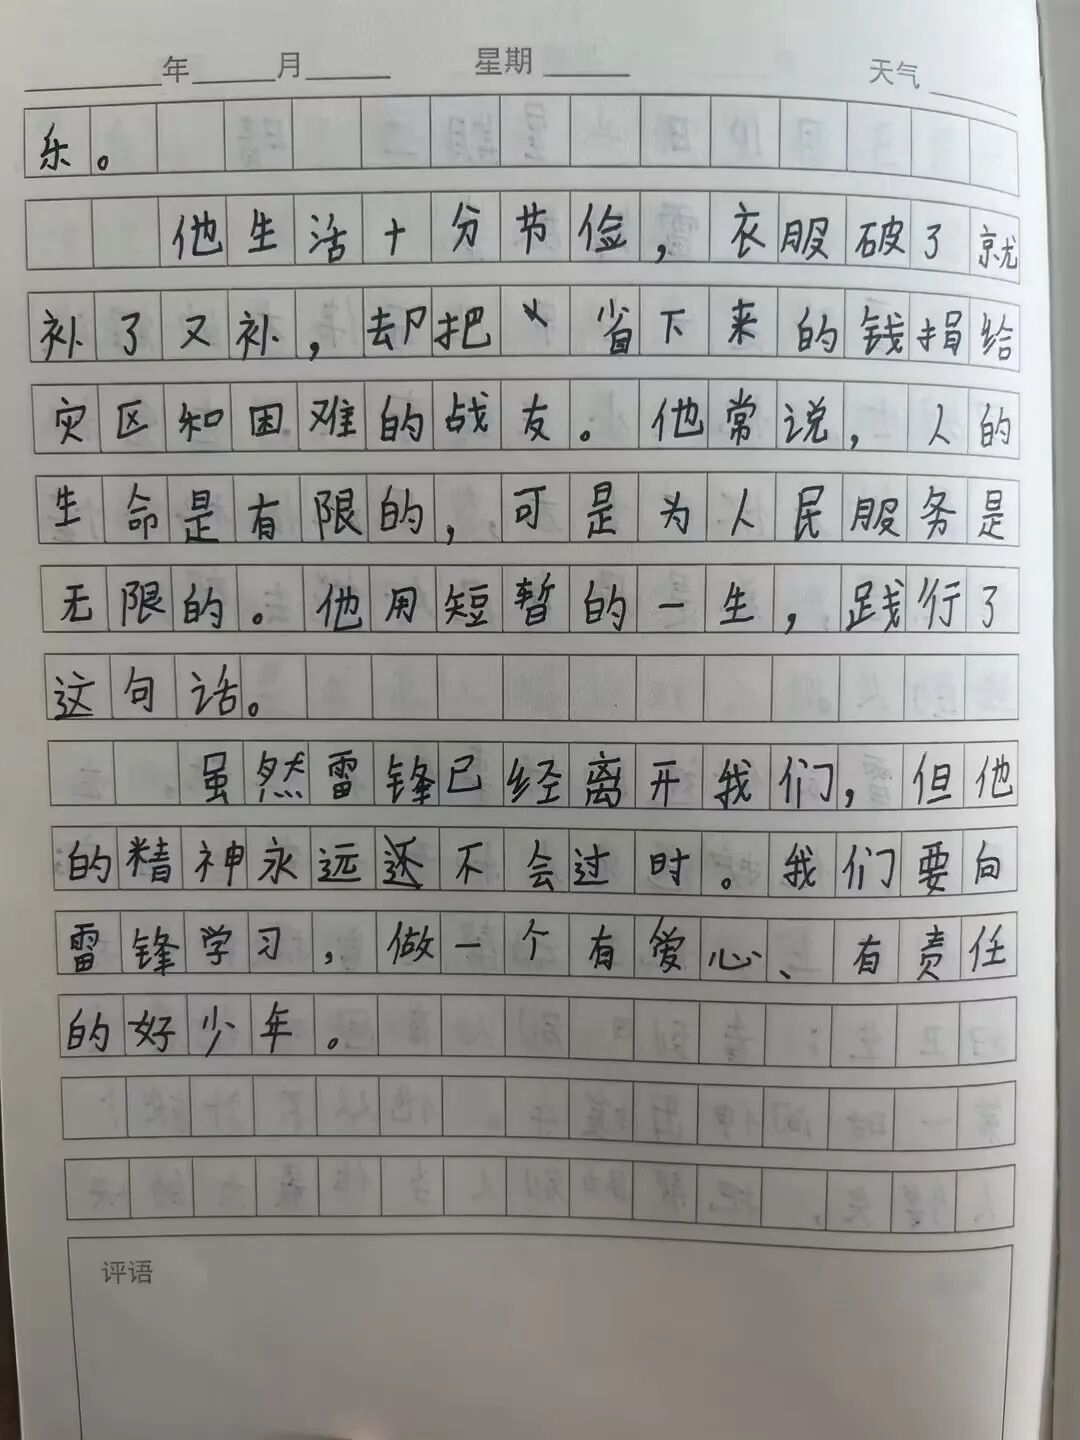 年 月 星期 天气
乐。
他生活十分节俭，衣服破了就
补了又补，却把省下来的钱捐给
灾区和困难的战友。他常说，人的
生命是有限的，可是为人民服务是
无限的。他用短暂的一生，践行了
这句话。
虽然雷锋已经离开我们，但他
的精神永远还不会过时。我们要向
雷锋学习，做一个有爱心、有责任
的好少年。
评语